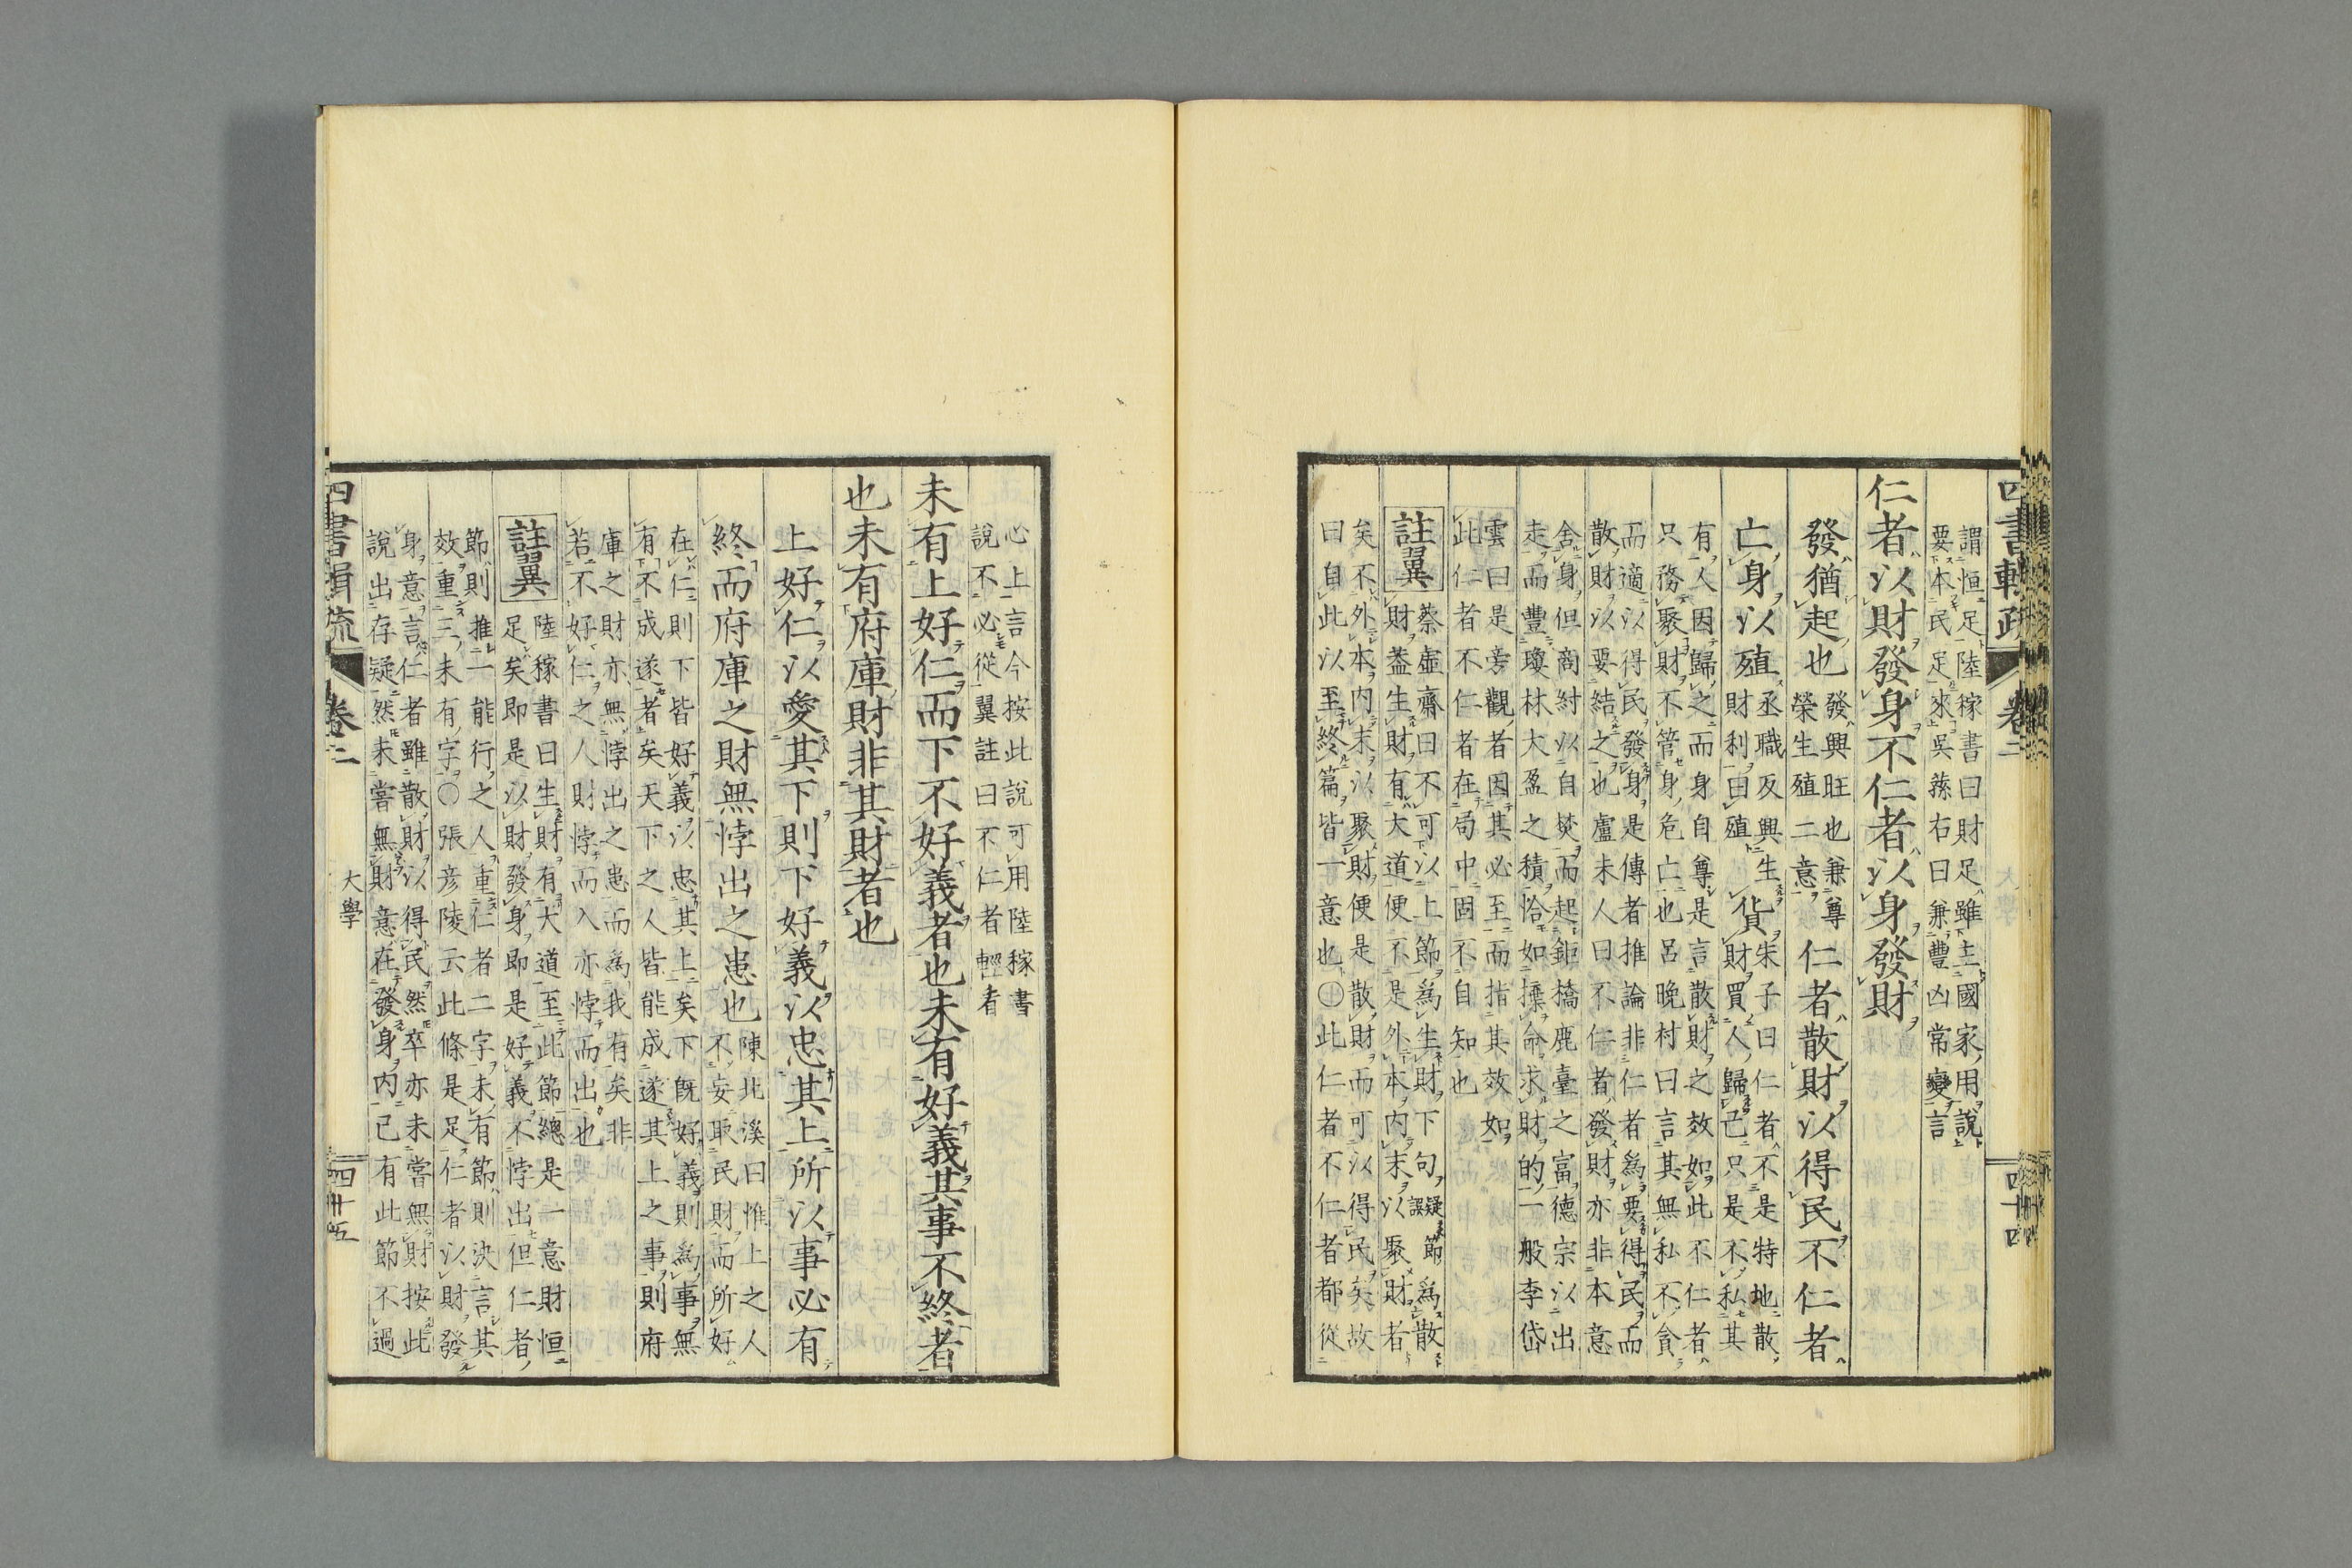 四書輯疏
卷二
四十四
謂恒足陸稼書曰財足雖主國家用說
要本民足來吳蓀右曰兼豊凶常變言
仁者以財發身不仁者以身發財
發猶起也
發興旺也兼尊
榮生殖二意
仁者散財以得民不仁者
亡身以殖
丞職反興生
財利曰殖
貨
朱子曰仁者不是特地散
財買人歸己只是不私其
有人因歸之而身自尊是言散財之效如此不仁者
只務聚財不管身危亡也呂晚村曰言其無私不貪
而適以得民發身是傳者推論非仁者為要得民而
散財以要結之也盧未人曰不仁者發財亦非本意
舍身但商紂以自焚而起鉅橋鹿臺之富德宗以出
走而豐瓊林大盈之積恰如捨命求財的一般李岱
雲曰是旁觀者因其必至而指其效如
此仁者不仁者在局中固不自知也
註翼
蔡虛齋曰不可以上節為生財下句疑誤節為散
財蓋生財有大道便不是外本內末以聚財者
矣不外本內末以聚財便是散財而可以得民矣故
曰自此以至終篇皆一意也〇此仁者不仁者都從
心上言今按此說可用陸稼書
說不必從翼註曰不仁者輕看
未有上好仁而下不好義者也未有好義其事不終者
也未有府庫財非其財者也
上好仁以愛其下則下好義以忠其上所以事必有
終而府庫之財無悖出之患也
陳北溪曰惟上之人
不妄取民財而所好
在仁則下皆好義以忠其上矣下既好義則為事無
有不成遂者矣天下之人皆能成遂其上之事則府
庫之財亦無悖出之患而為我有矣非
若不好仁之人財悖而入亦悖而出也
註翼
陸稼書曰生財有大道至此節總是一意財恒
足矣即是以財發身即是好義不悖出但仁者
節則推一能行之人重仁者二字未有節則決言其
效重三未有字〇張彥陵云此條是足仁者以財發
身意言仁者雖散財以得民然卒亦未嘗無財按此
說出存疑然未嘗無財意在發身內已有此節不過
四書輯疏
卷二
大學
四十五